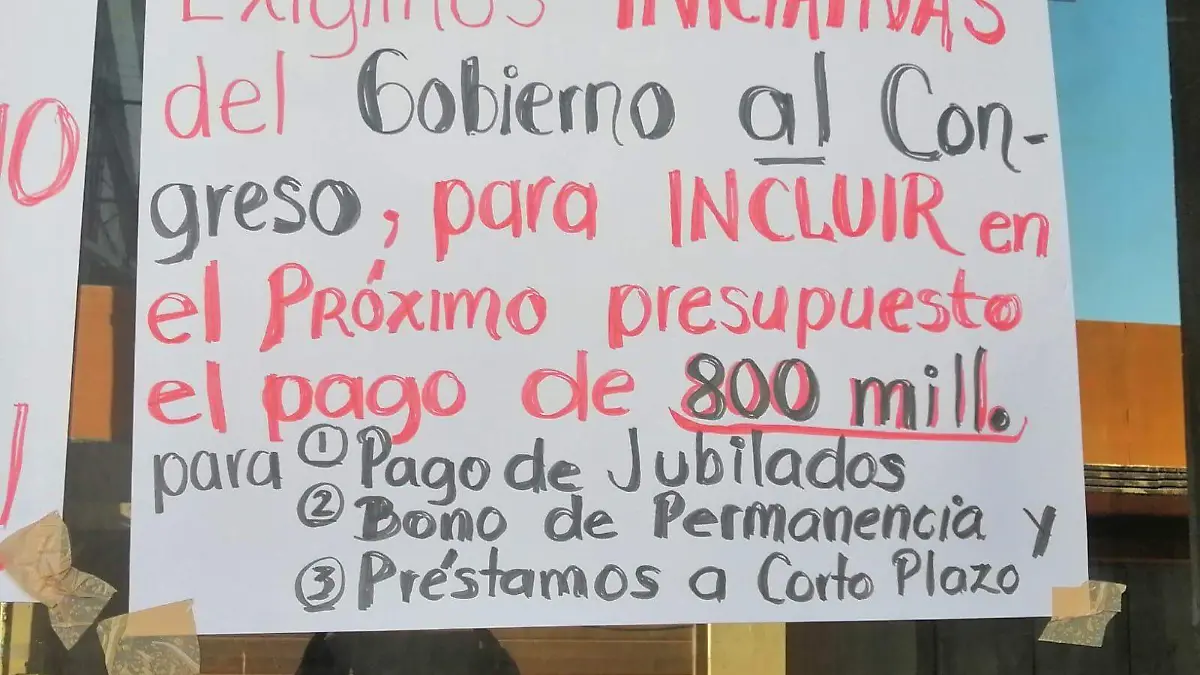 Exigimos INICIATIVAS
del Gobierno al Con-
greso, para INCLUIR en
el PRÓXIMO presupuesto
el pago de 800 mill.
para ① Pago de Jubilados
② Bono de Permanencia y
③ Préstamos a Corto Plazo